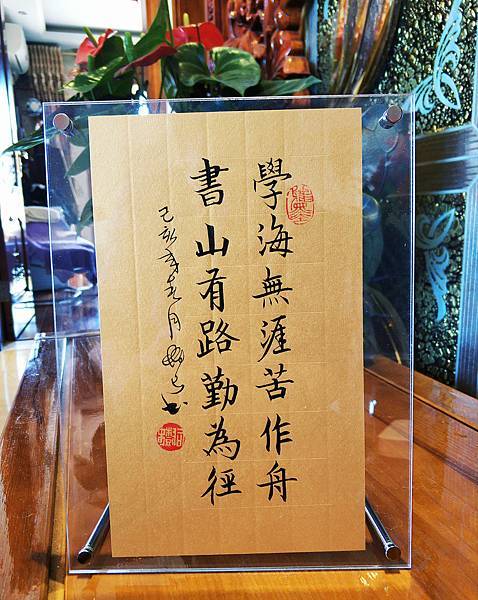 學海無涯苦作舟
書山有路勤為徑
己亥年